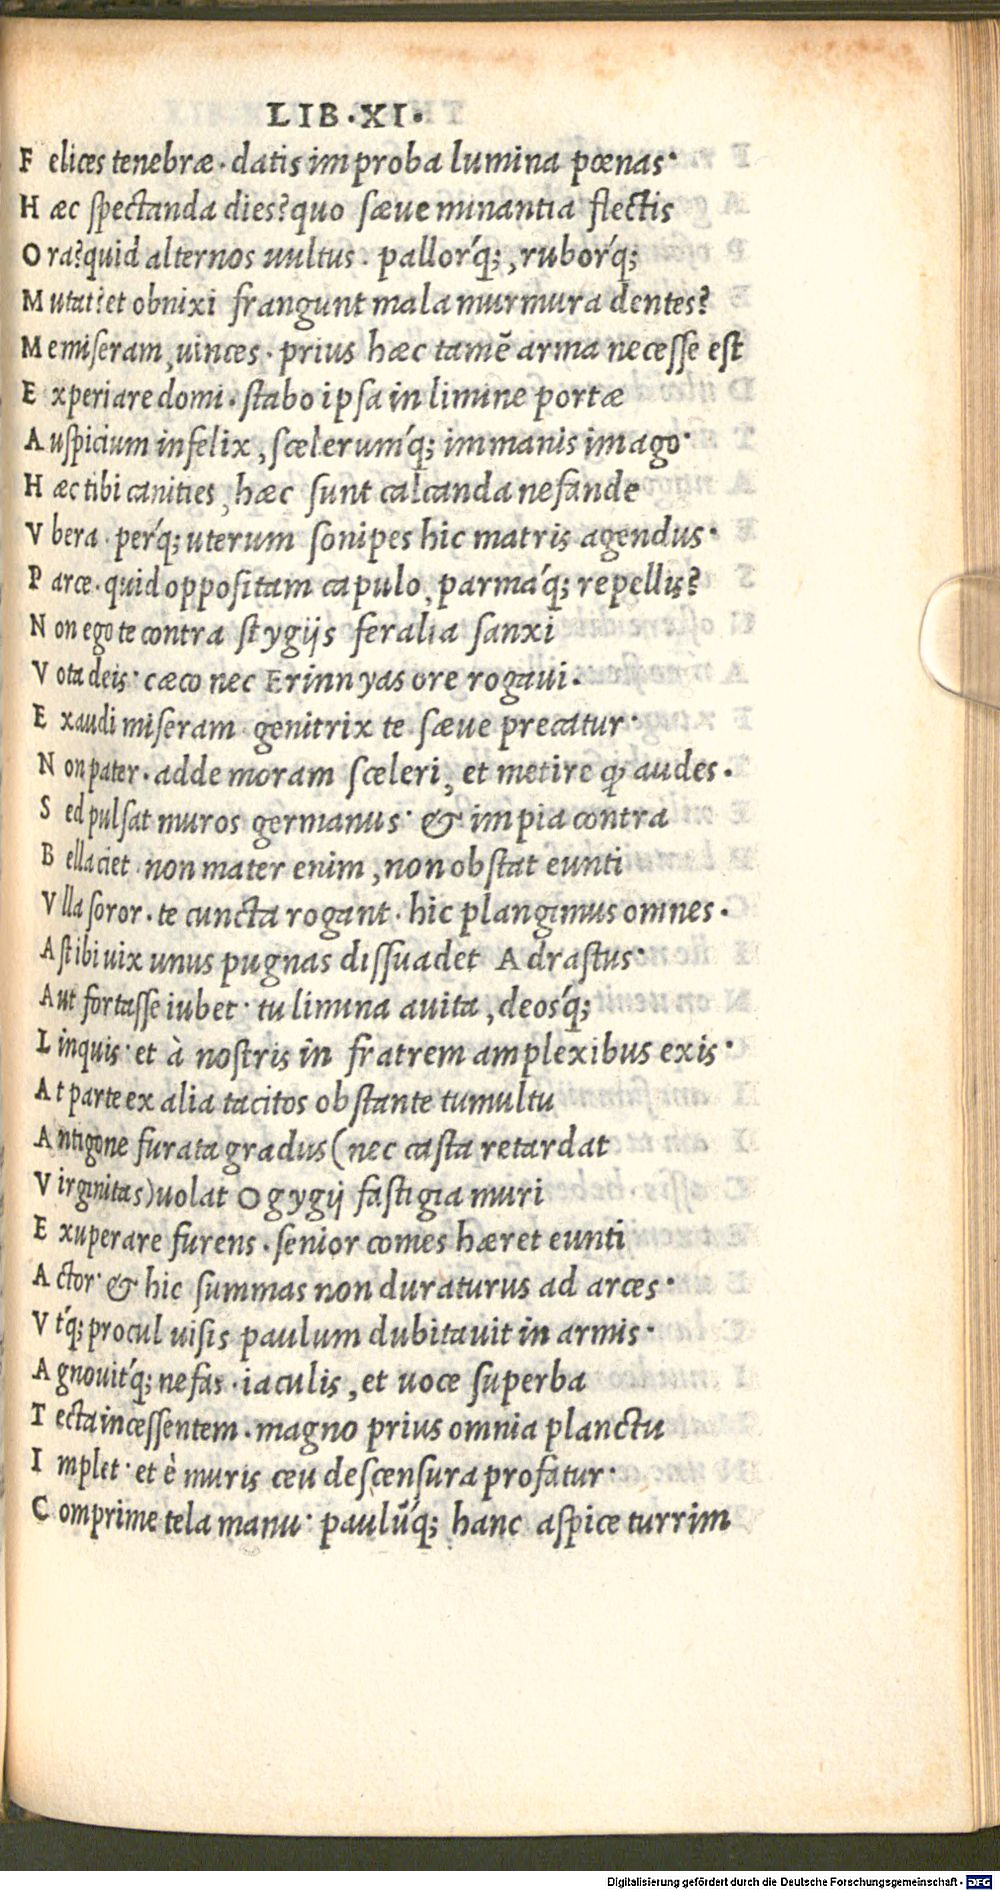 LIB·XI·
F elices tenebræ· datis improba lumina pœnas·
H æc spectanda dies? quo sæue minantia flectis
O ra? quid alternos uultus· pallor'q;, rubor'q;
M utat? et obnixi frangunt mala murmura dentes?
M e miseram, uinces· prius hæc tamē arma necesse est
E xperiare domi· stabo ipsa in limine portæ
A uspicium infelix, scelerum'q; immanis imago·
H æc tibi canities, hæc sunt calcanda nefande
V bera· per'q; uterum sonipes hic matris agendus·
P arce· quid oppositam capulo, parma'q; repellis?
N on ego te contra stygijs feralia sanxi
V ota deis· cæco nec Erinnyas ore rogaui·
E xaudi miseram· genitrix te sæue precatur·
N on pater· adde moram sceleri, et metire q audes·
S ed pulsat muros germanus· & impia contra
B ella ciet· non mater enim, non obstat eunti
V lla soror· te cuncta rogant· hic plangimus omnes·
A st ibi uix unus pugnas dissuadet Adrastus·
A ut fortasse iubet· tu limina auita, deos'q;
L inquis· et à nostris in fratrem amplexibus exis·
A t parte ex alia tacitos obstante tumultu
A ntigone furata gradus (nec casta retardat
V irginitas) uolat Ogygij fastigia muri
E xuperare furens· senior comes hæret eunti
A ctor· & hic summas non duraturus ad arces·
V t'q; procul uisis paulum dubitauit in armis·
A gnouit'q; nefas· iaculis, et uoce superba
T ecta incessentem· magno prius omnia planctu
I mplet· et è muris ceu descensura profatur·
C omprime tela manu· paulū'q; hanc aspice turrim
Digitalisierung gefördert durch die Deutsche Forschungsgemeinschaft - DFG